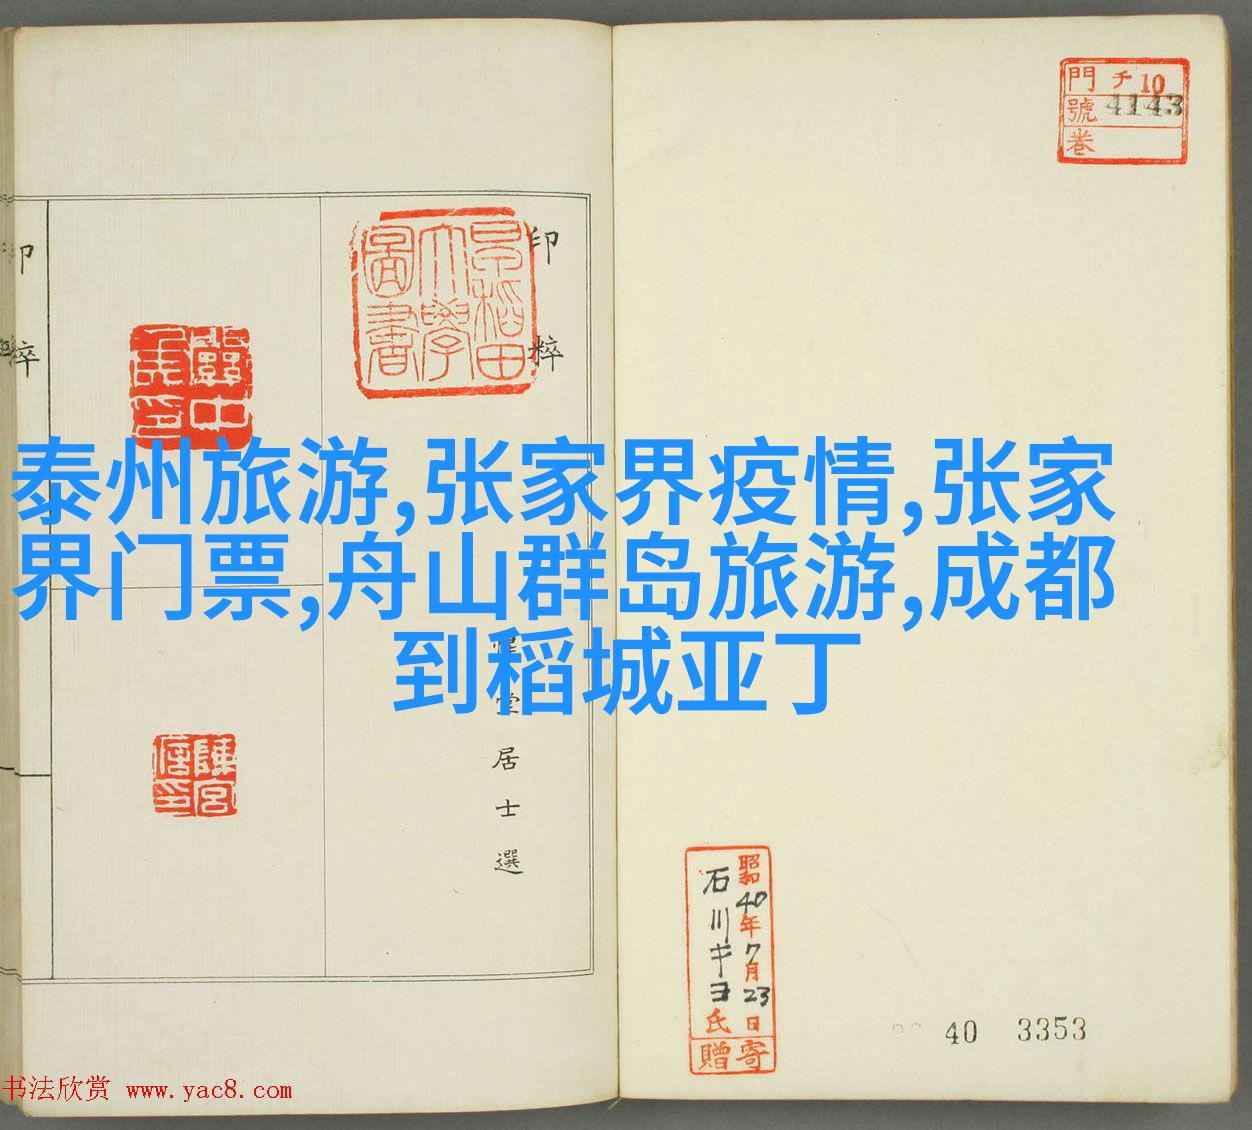 門 チ 10
號 4143
卷
印粹
印粹
早稻田
大學
圖書
泰州旅游,张家界疫情,张家
界门票,舟山群岛旅游,成都
到稻城亚丁
堂居士選
昭和40年7月23日
石川キヨ氏
寄贈
40 3353
书法欣赏 www.yac8.com